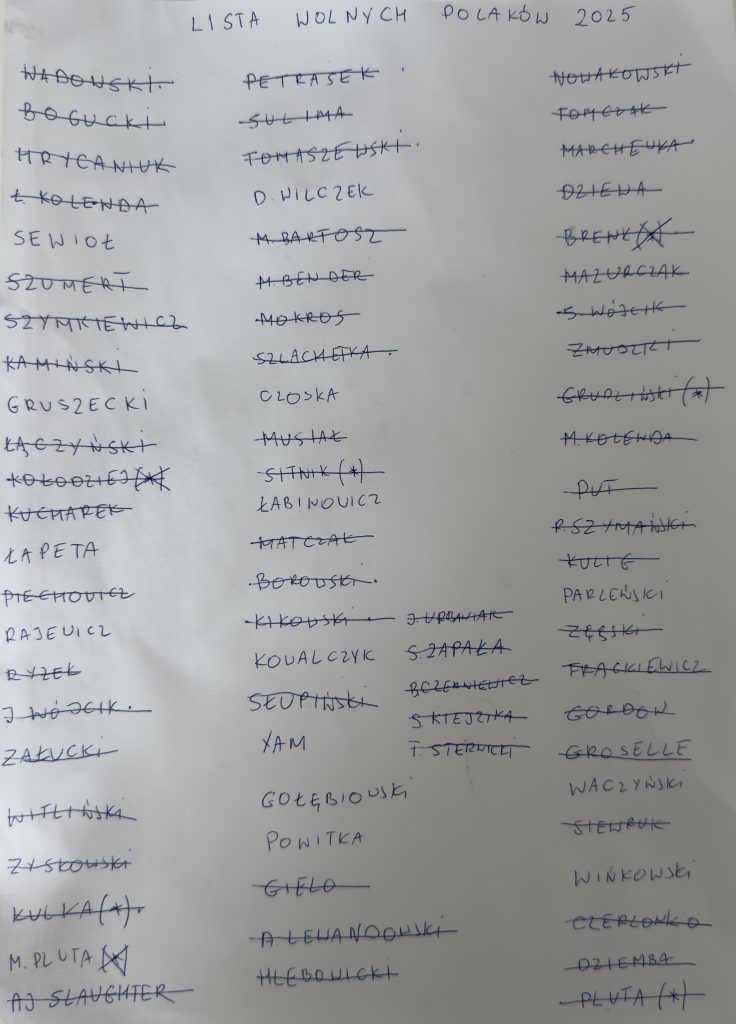 LISTA WOLNYCH POLAKÓW 2025
WADOWSKI.
BOGUCKI
HRYCANIUK
Ł. KOLENDA
SEWIOŁ
SZUMERT
SZYMKIEWICZ
KAMIŃSKI
GRUSZECKI
ŁĄCZYŃSKI
KOŁODZIEJ (*)
KUCHAREK
ŁAPETA
PIECHOWICZ
RAJEWICZ
RYŻEK
J. WÓJCIK.
ZAŁUCKI
WITLIŃSKI
ZYSKOWSKI
KULKA (*).
M. PLUTA (*)
AJ SLAUGHTER
PETRASEK
SULIMA
TOMASZEWSKI.
D. WILCZEK
M. BARTOSZ
M. BENDER
MOKROS
SZLACHETKA.
CZOSKA
MUSIAŁ
SITNIK (*)
ŁABINOWICZ
MATCZAK
BOROWSKI.
KIKOWSKI
KOWALCZYK
SŁUPIŃSKI
YAM
GOŁĘBIOWSKI
POWITKA
GIELO
A LEWANDOWSKI
HLEBOWICKI
J. URBANIAK
S. ZAPAŁA
B. CZERNIEWICZ
S. KIEJZIKA
T. STERNICKI
NOWAKOWSKI
TOMCZAK
MARCHEWKA
DZIEWA
BRENK (*)
MAZURCZAK
S. WÓJCIK
ZMUDZKI
GRUDZIŃSKI (*)
M. KOLENDA
PUT
P. SZYMAŃSKI
KULIG
PARZEŃSKI
ZĘBSKI
FRĄCKIEWICZ
GORDON
GROSELLE
WACZYŃSKI
SIEWRUK
WIŃKOWSKI
CZERLONKO
DZIEMBA
PLUTA (*)